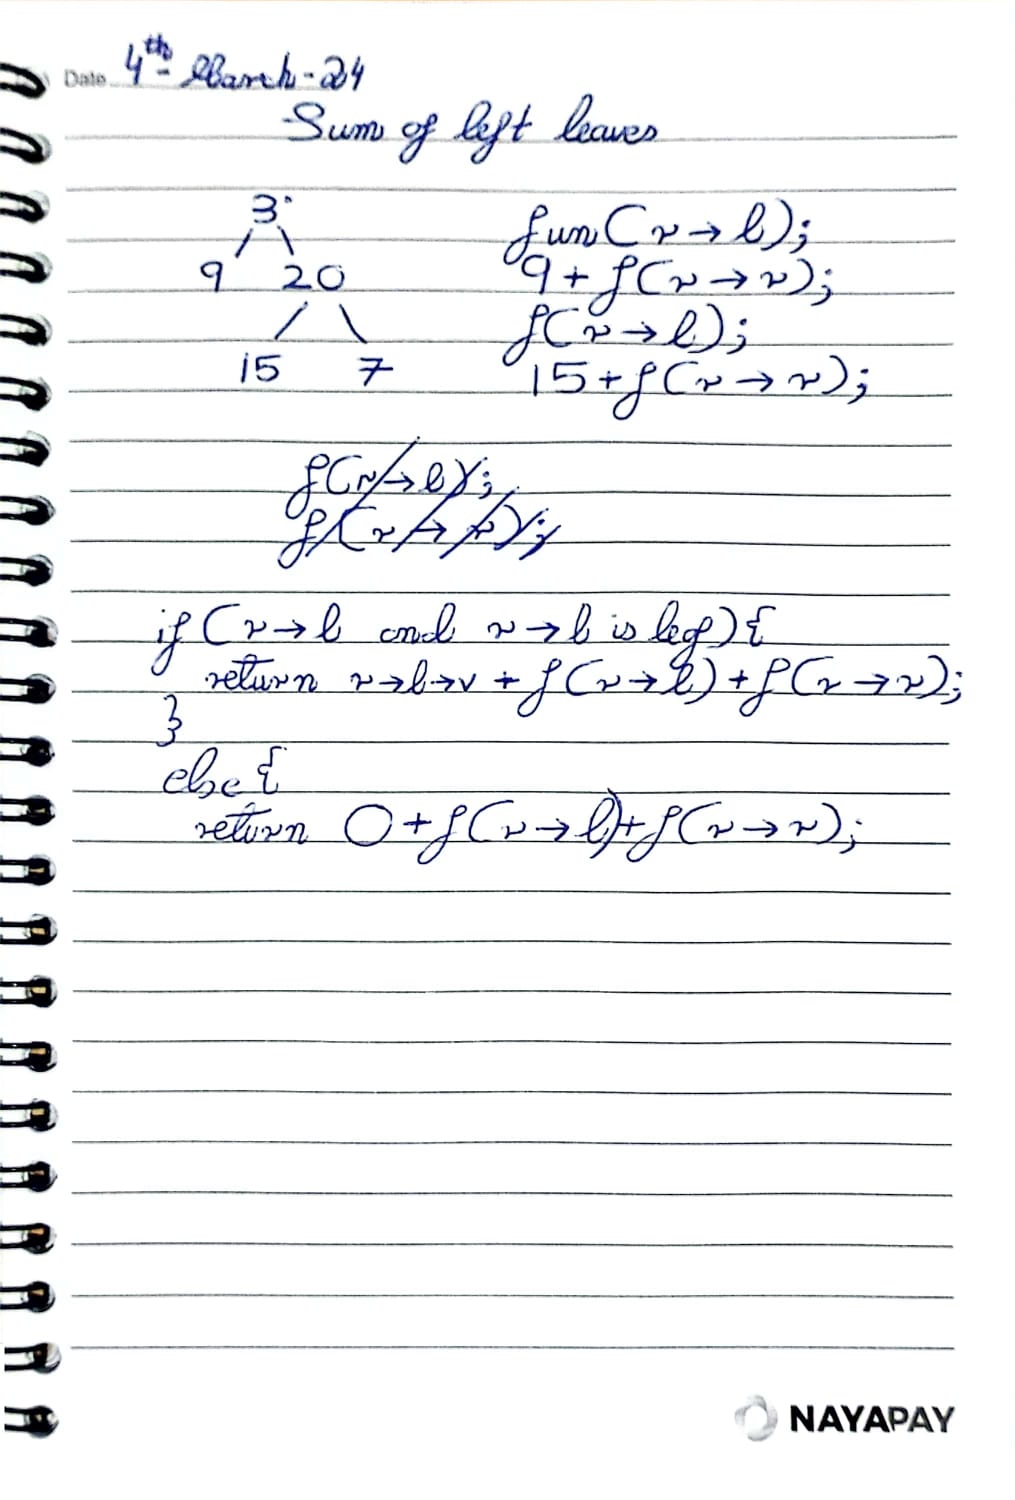 Date 4th March-24
Sum of left leaves
3
9 20
15 7
fun(r→l);
9+f(r→r);
f(r→l);
15+f(r→r);
f(r→l);
f(r→r);
if (r→l and r→l is lef){
return r→l→v + f(r→l)+f(r→r);
}
else {
return 0+f(r→l)+f(r→r);
NAYAPAY